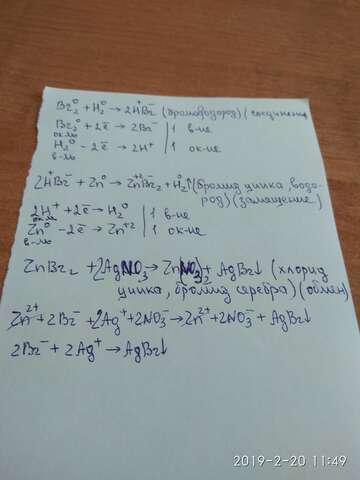 Br₂⁰ + H₂⁰ → 2H⁺Br⁻ (бромоводород) (соединения
Br₂⁰ + 2ē → 2Br⁻ | 1 в-ие
ок-ль
H₂⁰ - 2ē → 2H⁺ | 1 ок-ие
в-ль
2H⁺Br⁻ + Zn⁰ → Zn⁺²Br₂⁻ + H₂⁰↑ (бромид цинка, водо-
род) (замещение)
2H⁺ + 2ē → H₂⁰ | 1 в-ие
ок-ль
Zn⁰ - 2ē → Zn⁺² | 1 ок-ие
в-ль
ZnBr₂ + 2AgNO₃ → Zn(NO₃)₂ + AgBr↓ (хлорид
цинка, бромид серебра) (обмен)
Zn²⁺ + 2Br⁻ + 2Ag⁺ + 2NO₃⁻ → Zn²⁺ + 2NO₃⁻ + AgBr↓
2Br⁻ + 2Ag⁺ → AgBr↓
2019-2-20 11:49